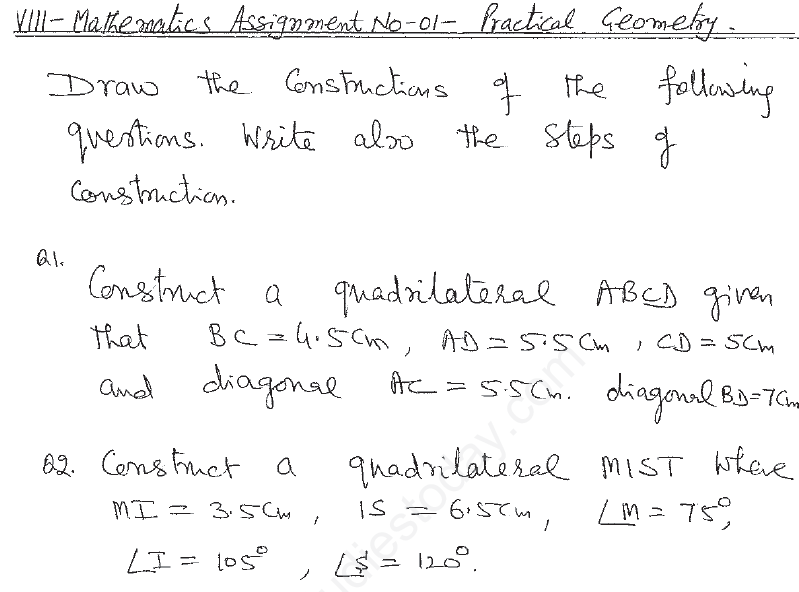 VIII - Mathematics Assignment No-01- Practical Geometry.
Draw the Constructions of the following
questions. Write also the Steps of
Construction.
Q1. Construct a quadrilateral ABCD given
that BC = 4.5cm, AD = 5.5cm, CD = 5cm
and diagonal AC = 5.5cm. diagonal BD=7cm
Q2. Construct a quadrilateral MIST where
MI = 3.5cm, IS = 6.5cm, ∠M = 75°,
∠I = 105°, ∠S = 120°.